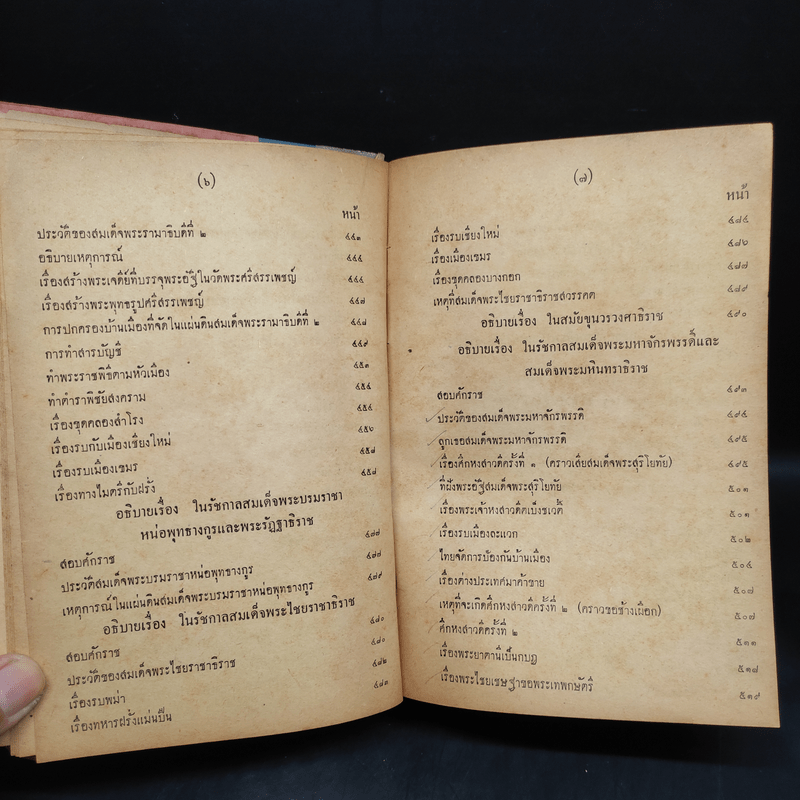 (๖)
หน้า
ประวัติของสมเด็จพระรามาธิบดีที่ ๒ ๔๔๓
อธิบายเหตุการณ์ ๔๔๔
เรื่องสร้างพระเจดีย์ที่บรรจุพระอัฐิในวัดพระศรีสรรเพชญ์ ๔๔๔
เรื่องสร้างพระพุทธรูปศรีสรรเพชญ์ ๔๔๗
การปกครองบ้านเมืองที่จัดในแผ่นดินสมเด็จพระรามาธิบดีที่ ๒ ๔๔๘
การทำสารบัญชี ๔๔๙
ทำพระราชพิธีตามหัวเมือง ๔๕๓
ทำตำราพิชัยสงคราม ๔๕๔
เรื่องขุดคลองสำโรง ๔๕๔
เรื่องรบกับเมืองเชียงใหม่ ๔๕๖
เรื่องรบเมืองเขมร ๔๕๘
เรื่องทางไมตรีกับฝรั่ง ๔๕๘
อธิบายเรื่อง ในรัชกาลสมเด็จพระบรมราชา
หน่อพุทธางกูรและพระรัฏฐาธิราช
สอบศักราช ๔๗๗
ประวัติสมเด็จพระบรมราชาหน่อพุทธางกูร ๔๗๗
เหตุการณ์ในแผ่นดินสมเด็จพระบรมราชาหน่อพุทธางกูร ๔๗๙
อธิบายเรื่อง ในรัชกาลสมเด็จพระไชยราชาธิราช
สอบศักราช ๔๘๐
ประวัติของสมเด็จพระไชยราชาธิราช ๔๘๐
เรื่องรบพม่า ๔๘๒
เรื่องทหารฝรั่งแม่นปืน ๔๘๓
(๗)
หน้า
เรื่องรบเชียงใหม่ ๔๘๔
เรื่องเมืองเขมร ๔๘๖
เรื่องขุดคลองบางกอก ๔๘๗
เหตุที่สมเด็จพระไชยราชาธิราชสวรรคต ๔๘๙
อธิบายเรื่อง ในสมัยขุนวรวงศาธิราช ๔๙๐
อธิบายเรื่อง ในรัชกาลสมเด็จพระมหาจักรพรรดิ์และ
สมเด็จพระมหินทราธิราช
สอบศักราช ๔๙๓
ประวัติของสมเด็จพระมหาจักรพรรดิ ๔๙๔
ลูกเธอสมเด็จพระมหาจักรพรรดิ ๔๙๕
เรื่องศึกหงสาวดีครั้งที่ ๑ (คราวเสียสมเด็จพระสุริโยทัย) ๔๙๕
ที่ฝังพระอัฐิสมเด็จพระสุริโยทัย ๕๐๑
เรื่องพระเจ้าหงสาวดีตเบ็งชเวตี้ ๕๐๑
เรื่องรบเมืองละแวก ๕๐๒
ไทยจัดการป้องกันบ้านเมือง ๕๐๔
เรื่องต่างประเทศมาค้าขาย ๕๐๗
เหตุที่จะเกิดศึกหงสาวดีครั้งที่ ๒ (คราวขอช้างเผือก) ๕๐๗
ศึกหงสาวดีครั้งที่ ๒ ๕๑๑
เรื่องพระยาตานีเป็นกบฎ ๕๑๗
เรื่องพระไชยเชษฐาขอพระเทพกษัตรี ๕๑๙